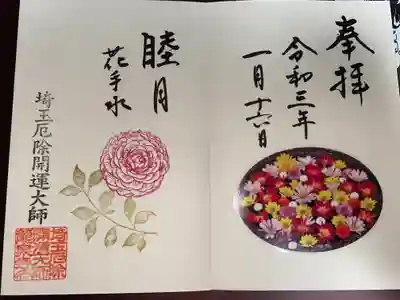 奉拝
令和三年
一月十六日
睦月
花手水
埼玉厄除開運大師